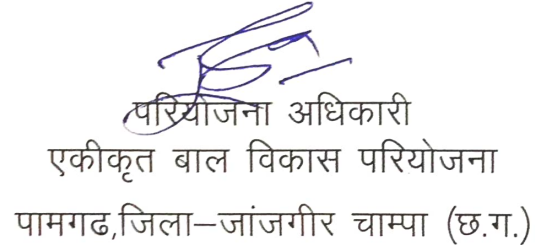 परियोजना अधिकारी
एकीकृत बाल विकास परियोजना
पामगढ,जिला–जांजगीर चाम्पा (छ.ग.)